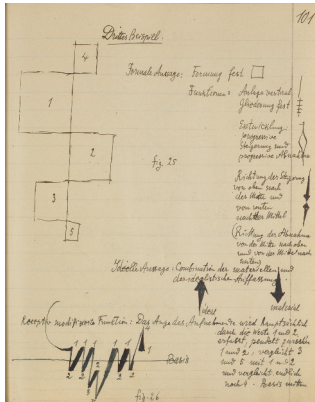 101
Drittes Beispiel.
4
Formale Aussage: Formung fest
Funktionen: Anlage vertical
1
Gliederung fest
Entwicklung:
progressive
Steigerung und
progressive Abnahme
2
fig 25
Richtung der Steigerung
von oben nach
der Mitte und
von unten
nach der Mitte
3
(Richtung der Abnahme
von der Mitte nach oben
und von der Mitte nach
unten)
5
Ideelle Aussage: Combination der materiellen und
der idealistischen Auffassung
ideal
materiell
Receptiv modificierte Function: Das Auge des Aufnehmenden wird hauptsächlich
durch die Werte 1 und 2
erfasst, pendelt zwischen
1 und 2; vergleicht 3
und 5 mit 1 und 2
und vergleicht endlich
noch 4. Basis unten
1 1 1 1 1
Basis
2 2 2 2
fig. 26